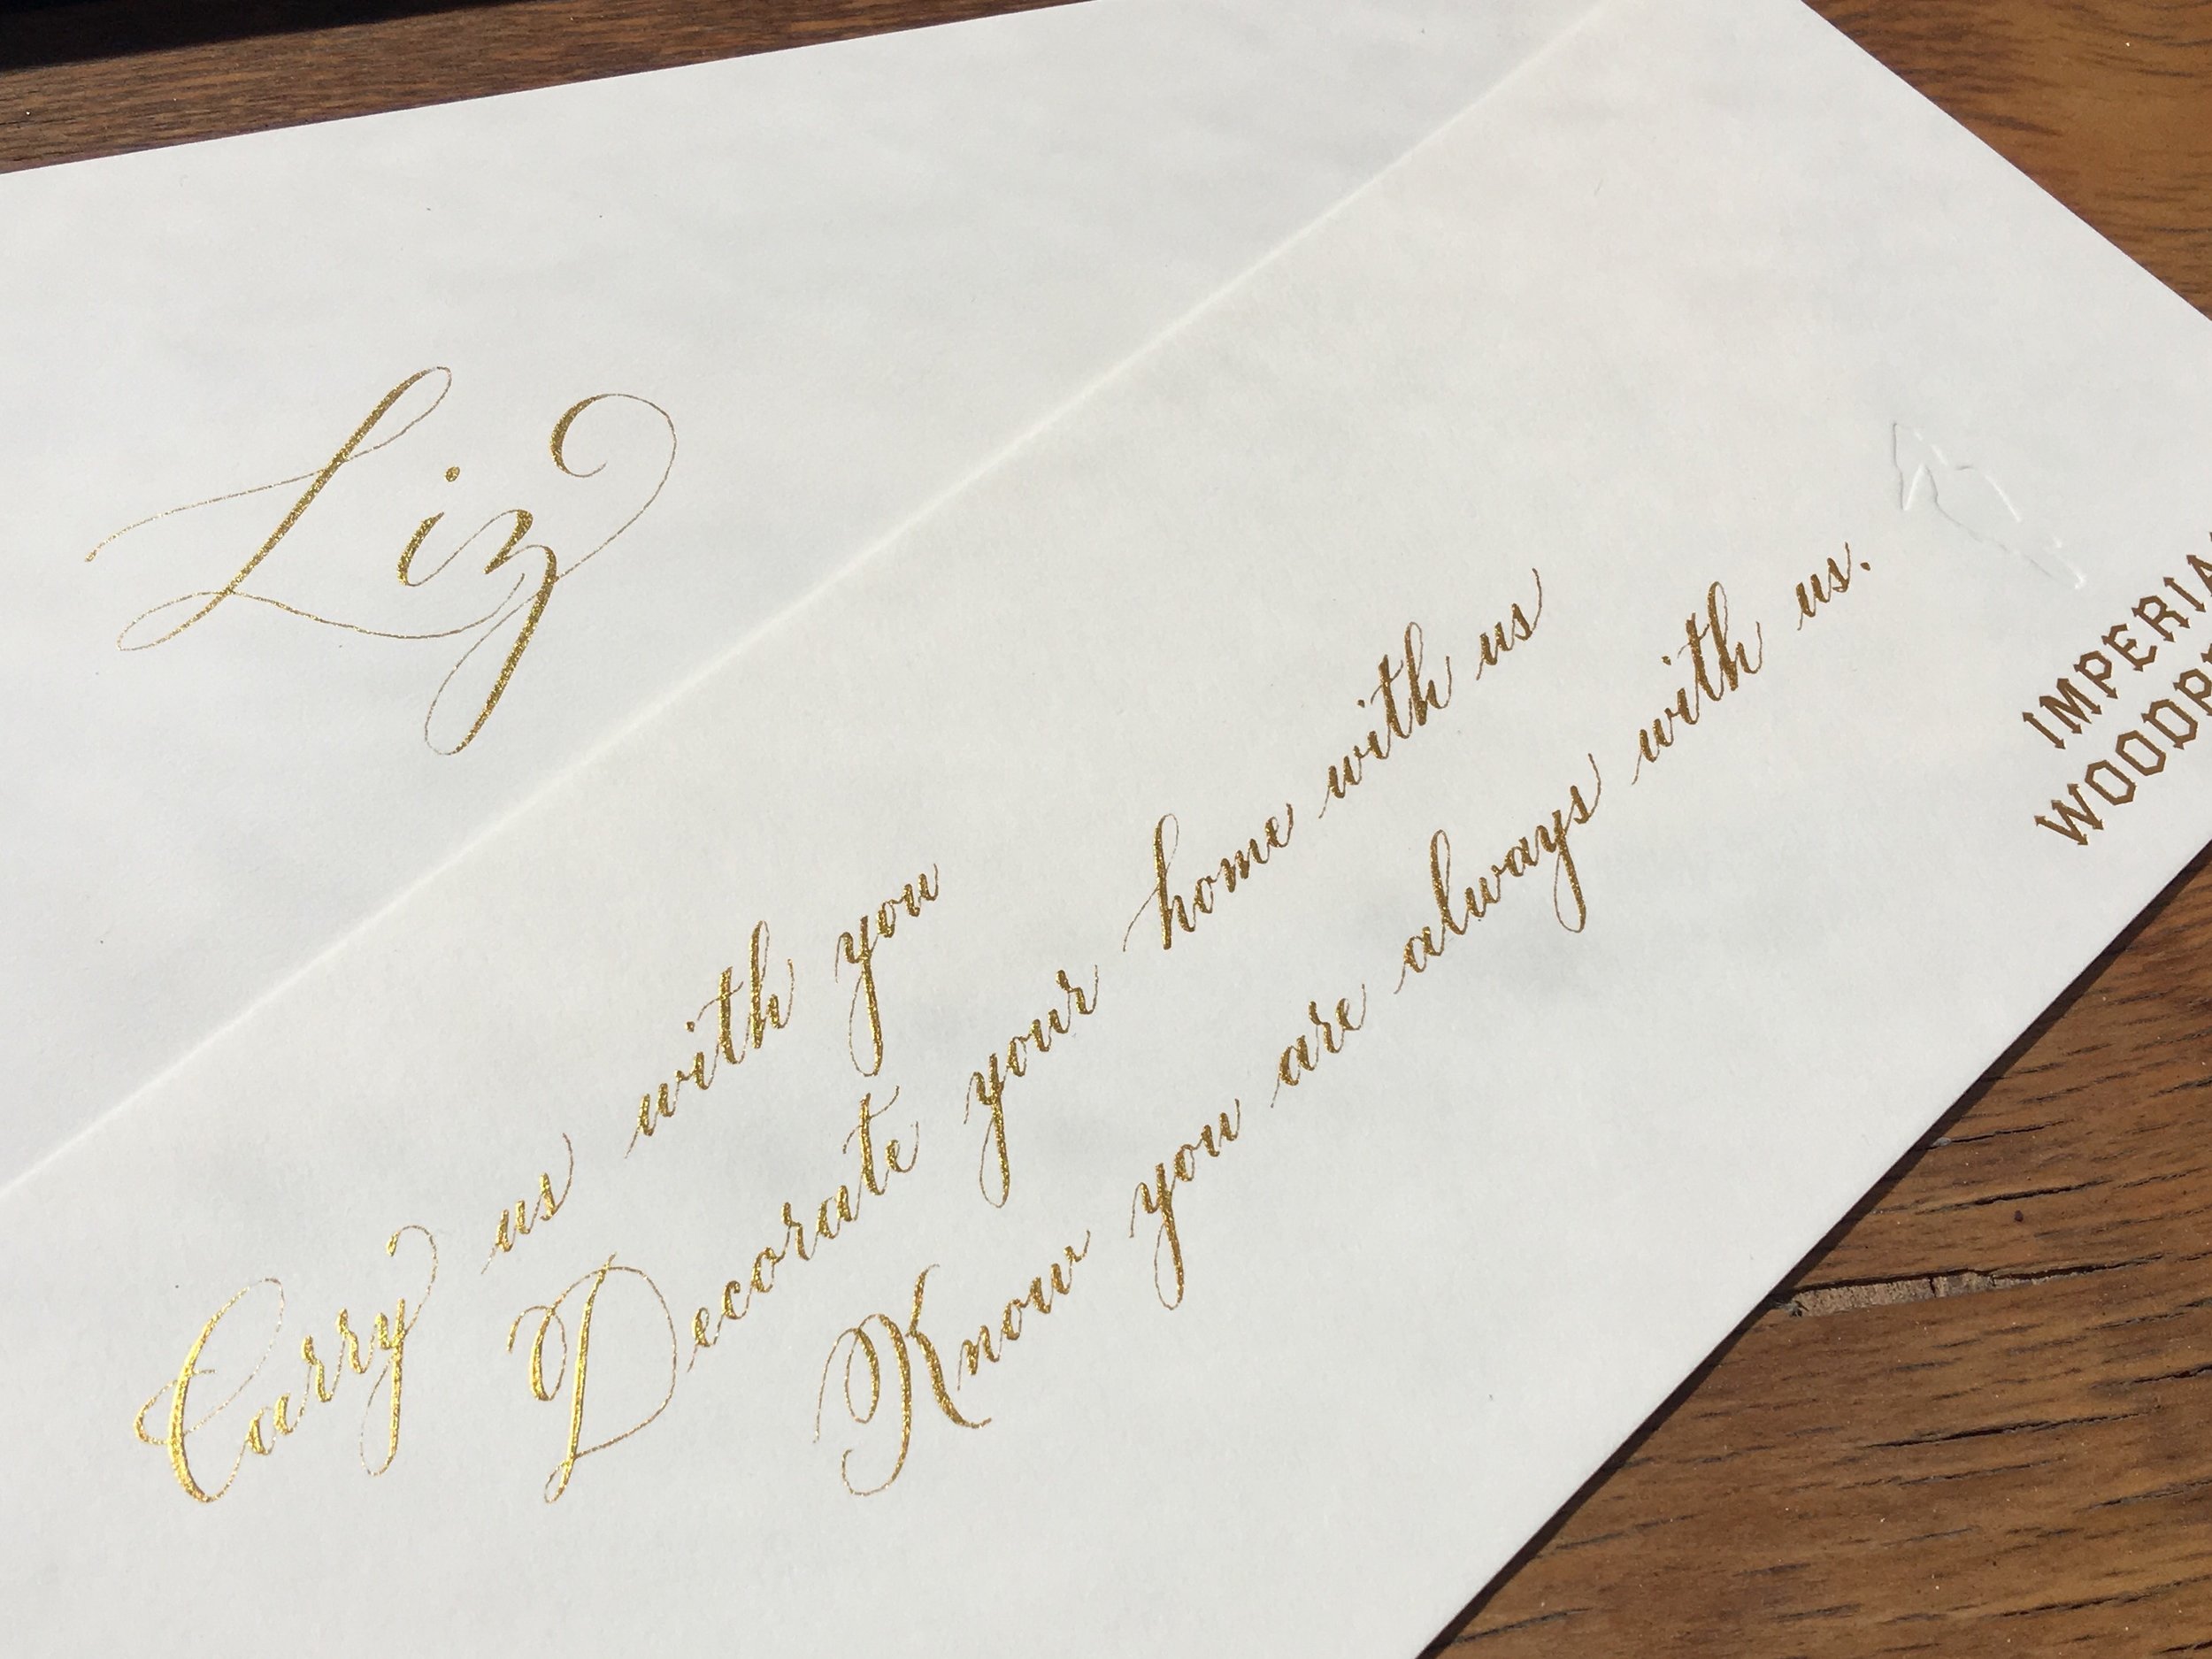 Liz
Carry us with you
Decorate your home with us
Know you are always with us.